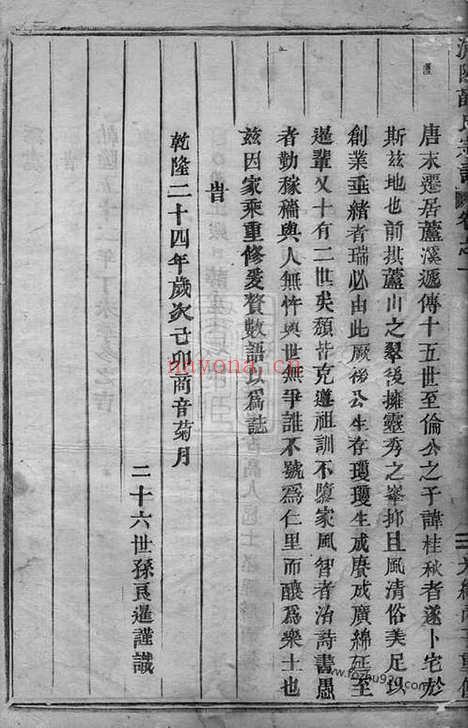 唐末遷居蘆溪遞傳十五世至倫公之子諱桂秋者遂卜宅於
斯茲地也前拱蘆山之翠後擁靈秀之峯抑且風清俗美足以
創業垂緒者瑞必由此厥後公生存瓊瓊生成賡成廣綿延至
暹輩又十有二世矣頹皆克遵祖訓不墮家風智者治詩書愚
者勤稼穡與人無忤與世無爭誰不號為仁里而釀為樂土也
茲因家乘重修爰贅數語以為誌
旹
乾隆二十四年歲次己卯商音菊月
二十六世孫良暹謹識
nayona.cn
www.fozhu920.com